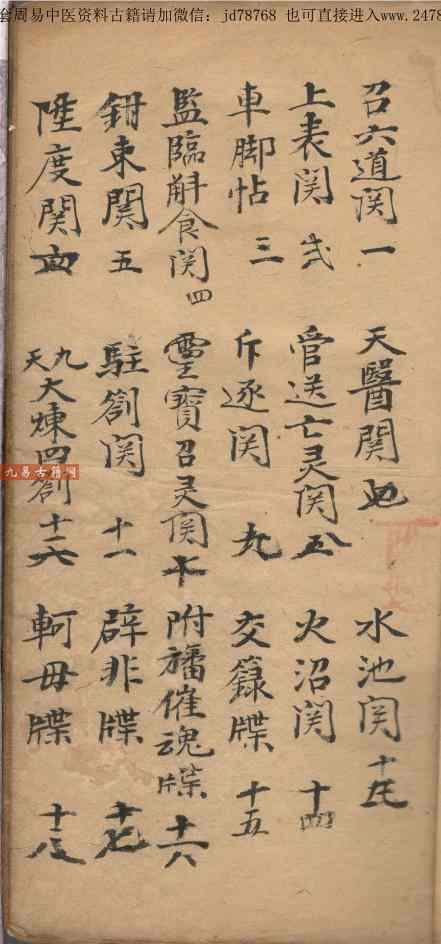 套周易中医资料古籍请加微信: jd78768 也可直接进入www.2478
召六道関一
天醫関
水池関十
上表関弍
管送亡灵関
火沼関十四
車脚帖三
斥逐関九
交籙牒十五
監臨斛食関四
靈寳召灵関十
附旛催魂牒十六
鉗束関五
駐劄関十一
辟非牒十七
陞度関
九天大煉四劄十
軻毋牒十八
九易古籍网